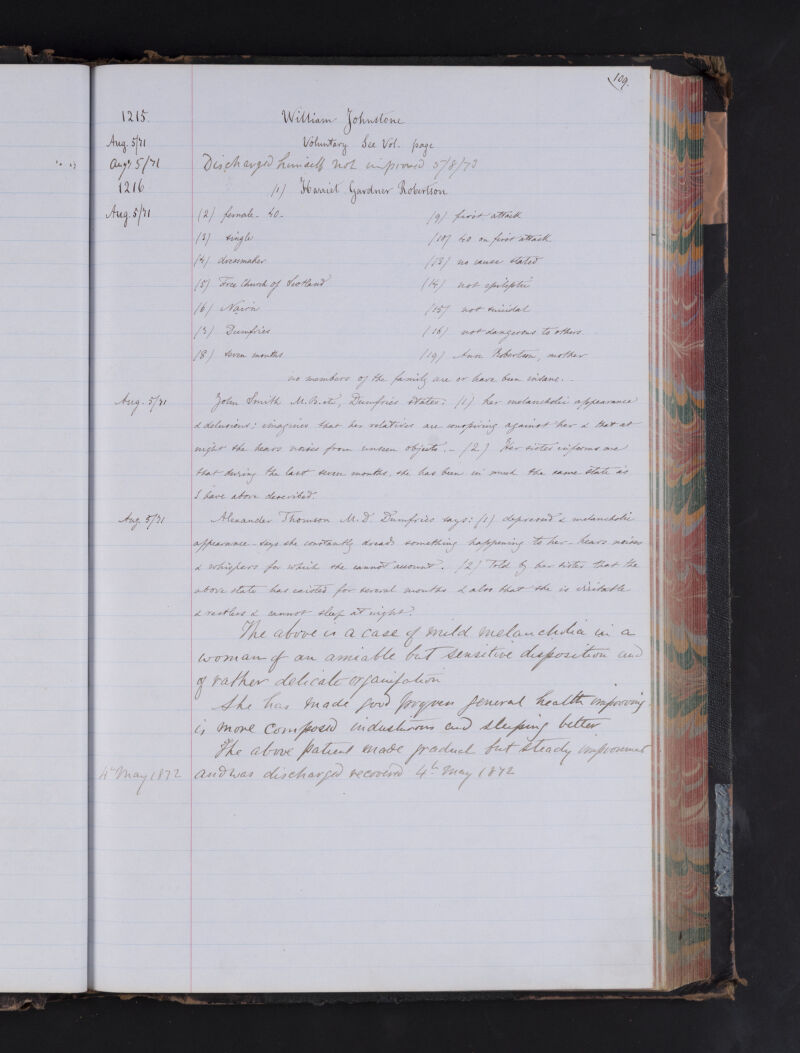 109.
1215 William Johnstone
Aug. 5/71 Voluntary See Vol. page
Augt 5/71 Discharged himself not improved 5/8/73
1216 (1) Harriet Gardner Robertson
Aug. 5/71 (2) female - 40 - (9) first attack
(3) single (10) 40 on first attack
(4) dressmaker (13) no cause stated
(5) Free Church of Scotland (14) not epileptic
(6) Nairn (15) not suicidal
(7) Dumfries (16) not dangerous to others
(8) seven months (19) Ann Robertson, mother
no members of the family are or have been insane. -
Aug. 5/71 John Smith M.B. &c, Dumfries states: (1) her melancholic appearance
& delusions; imagines that her relatives are conspiring against her & that at
night she hears noises from unseen objects. - (2) Her sister informs me
that during the last seven months, she has been in much the same state as
I have above described.
Aug. 5/71 Alexander Thomson M.D. Dumfries says: (1) depressed & melancholic
appearance - says she constantly dreads something happening to her - hears noises
& whispers for which she cannot account. (2) Told by her sister that the
above state has existed for several months & also that she is irritable
& restless & cannot sleep at night.
The above is a case of mild melancholia in a
woman of an amiable but sensitive disposition and
of rather delicate organisation
She has made good progress general health improving
is more composed industrious and sleeping better
The above patient made gradual but steady improvement
4th May 1872 and was discharged recovered 4th May 1872